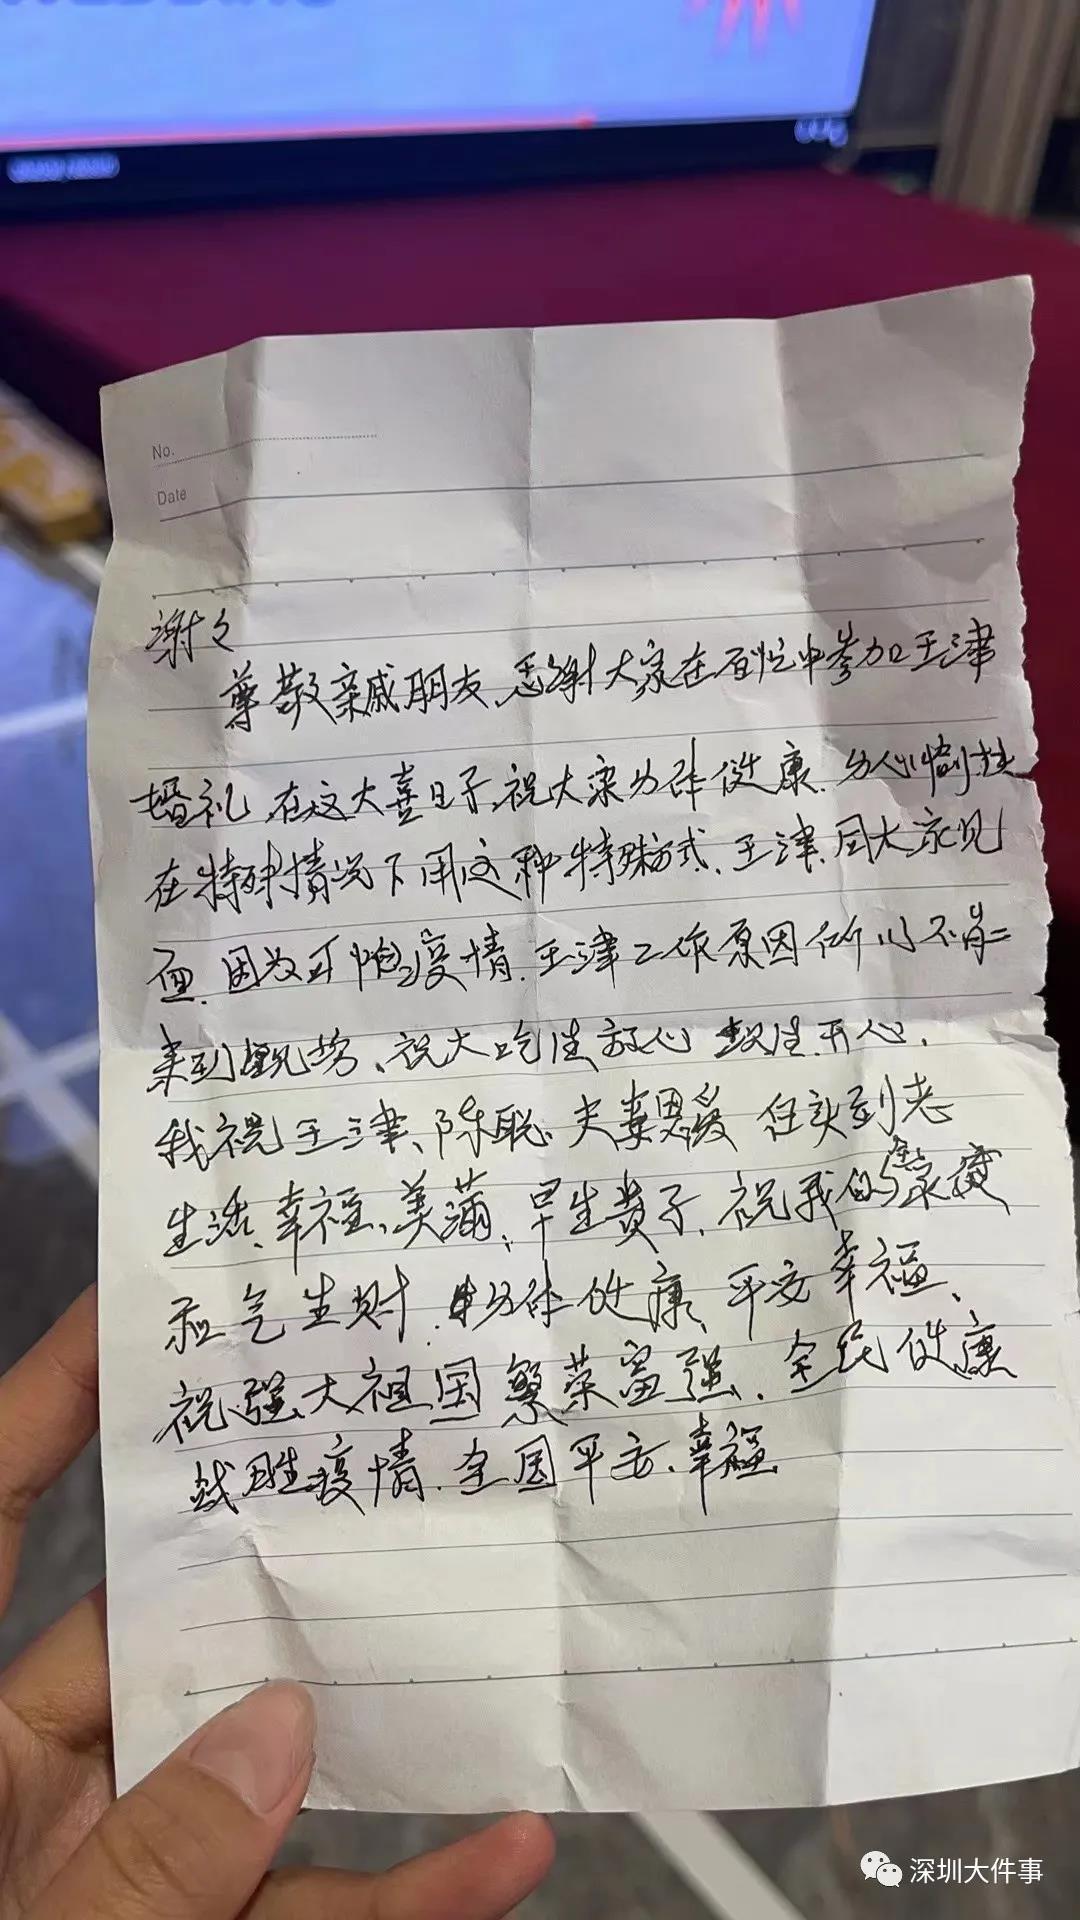 No.
Date
谢々
尊敬亲戚朋友、感谢大家在百忙中参加王津
婚礼、在这大喜日子、祝大家身体健康、身心愉快
在特殊情况下用这种特殊方式、王津、同大家见
面、因为可怕疫情、王津工作原因所以不能
来到现场、祝大吃住放心 开心、
我祝王津、陈聪、夫妻恩爱 白头到老
生活、幸福、美满、早生贵子、祝我的家庭
和气生财、身体健康、平安幸福、
祝强大祖国繁荣富强、全民健康
战胜疫情、全国平安、幸福
深圳大件事